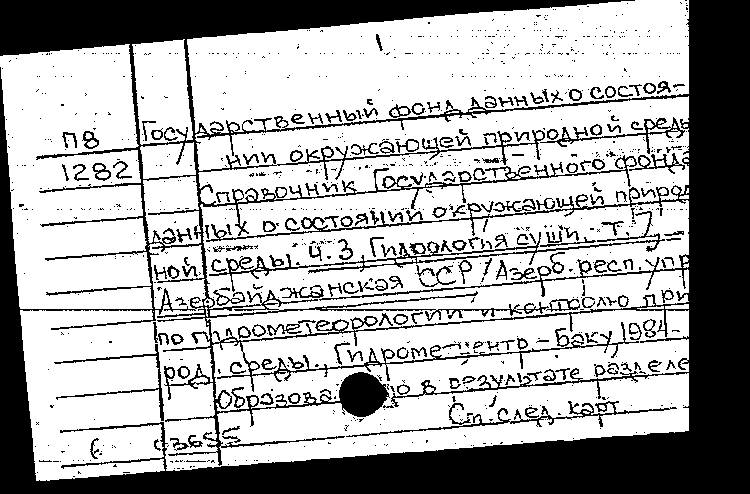 1
Государственный фонд данных о состоя-
П8 нии окружающей природной среды
1282 Справочник Государственного фонда
данных о состоянии окружающей природ
ной среды. Ч.3, Гидрология суши. Т. 7,
Азербайджанская ССР / Азерб. респ. упр
по гидрометеорологии и контролю при
род. среды., Гидрометцентр. - Баку, 1984 -
Образова о в результате разделе
См. след. карт.